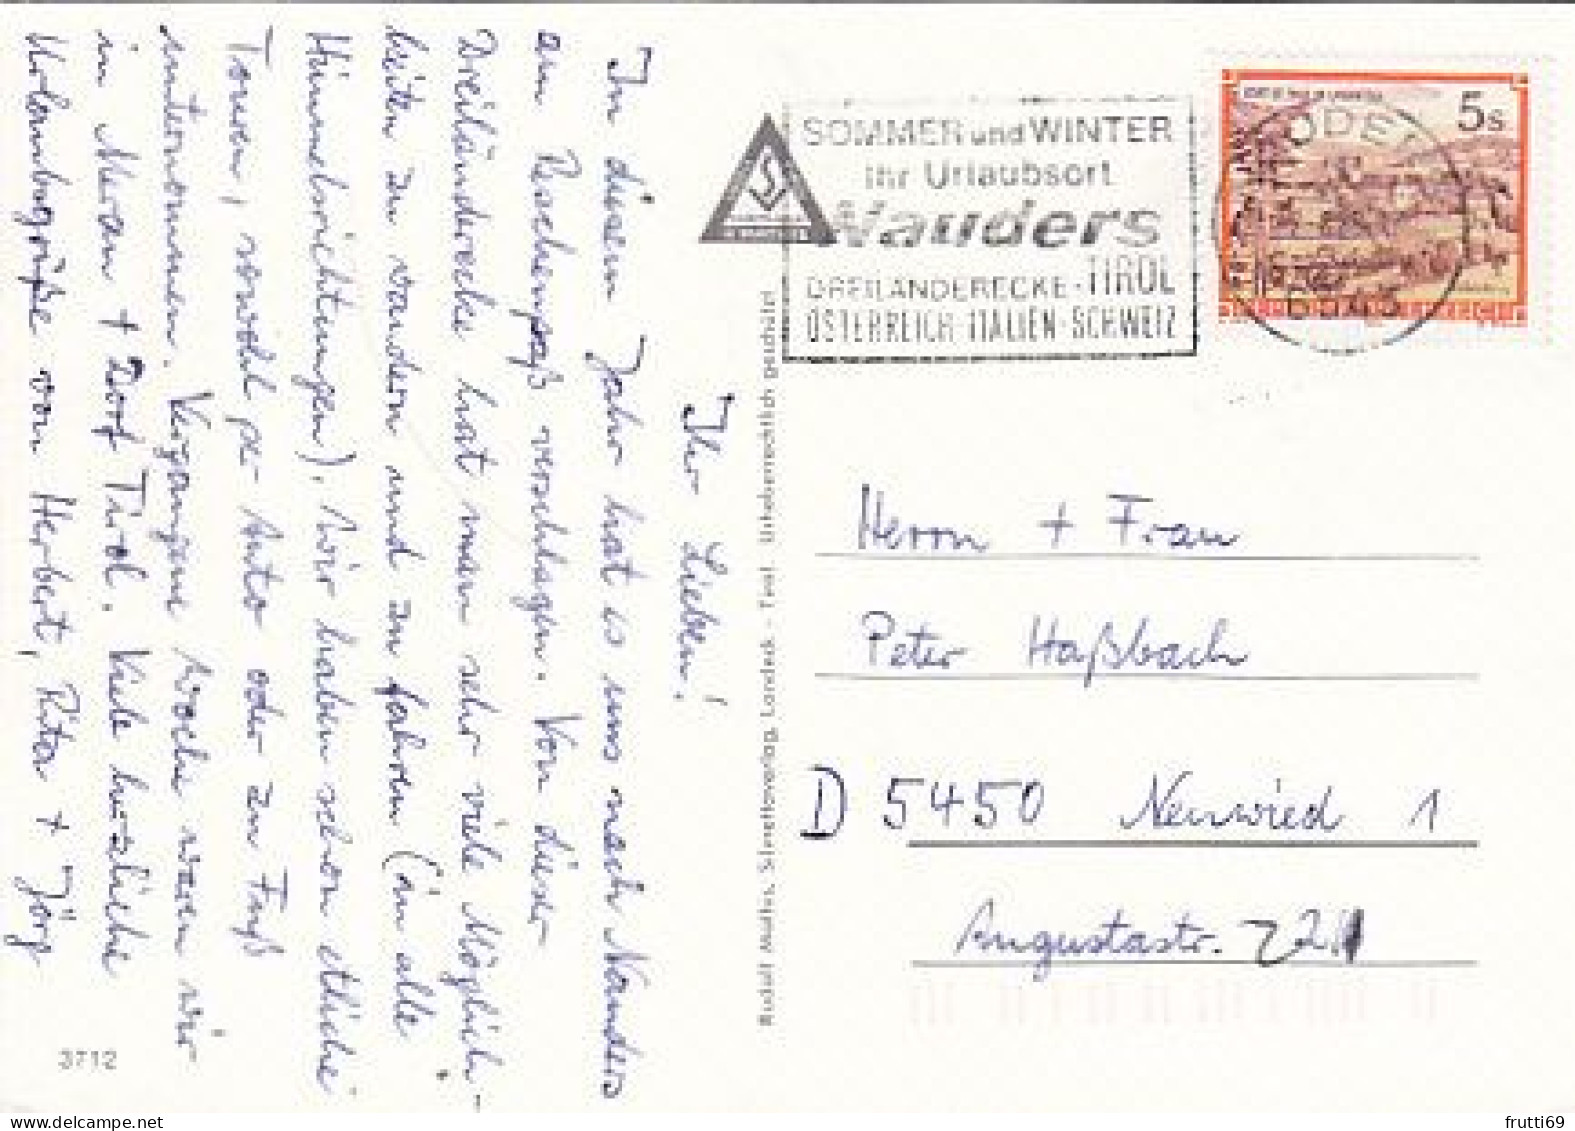 Ihr Lieben!
In diesem Jahr hat es uns nach Nauders
am Reschenpaß verschlagen. Von dieser
Dreiländerecke hat man sehr viele Möglich-
keiten zu wandern und zu fahren (in alle
Himmelsrichtungen). Wir haben schon etliche
Touren, sowohl per Auto oder zu Fuß
unternommen. Vergangene Woche waren wir
in Meran + Dorf Tirol. Viele herzliche
Urlaubsgrüße von Herbert, Rita + Jörg
3712
Rudolf Mathis, Silnettaverlag, Landeck - Tirol. Urheberrechtlich geschützt
SOMMER und WINTER
Ihr Urlaubsort
Nauders
DREILÄNDERECKE - TIROL
ÖSTERREICH - ITALIEN - SCHWEIZ
5s
Herrn + Frau
Peter Haßbach
D 5450 Neuwied 1
Augustastr.
frutti69